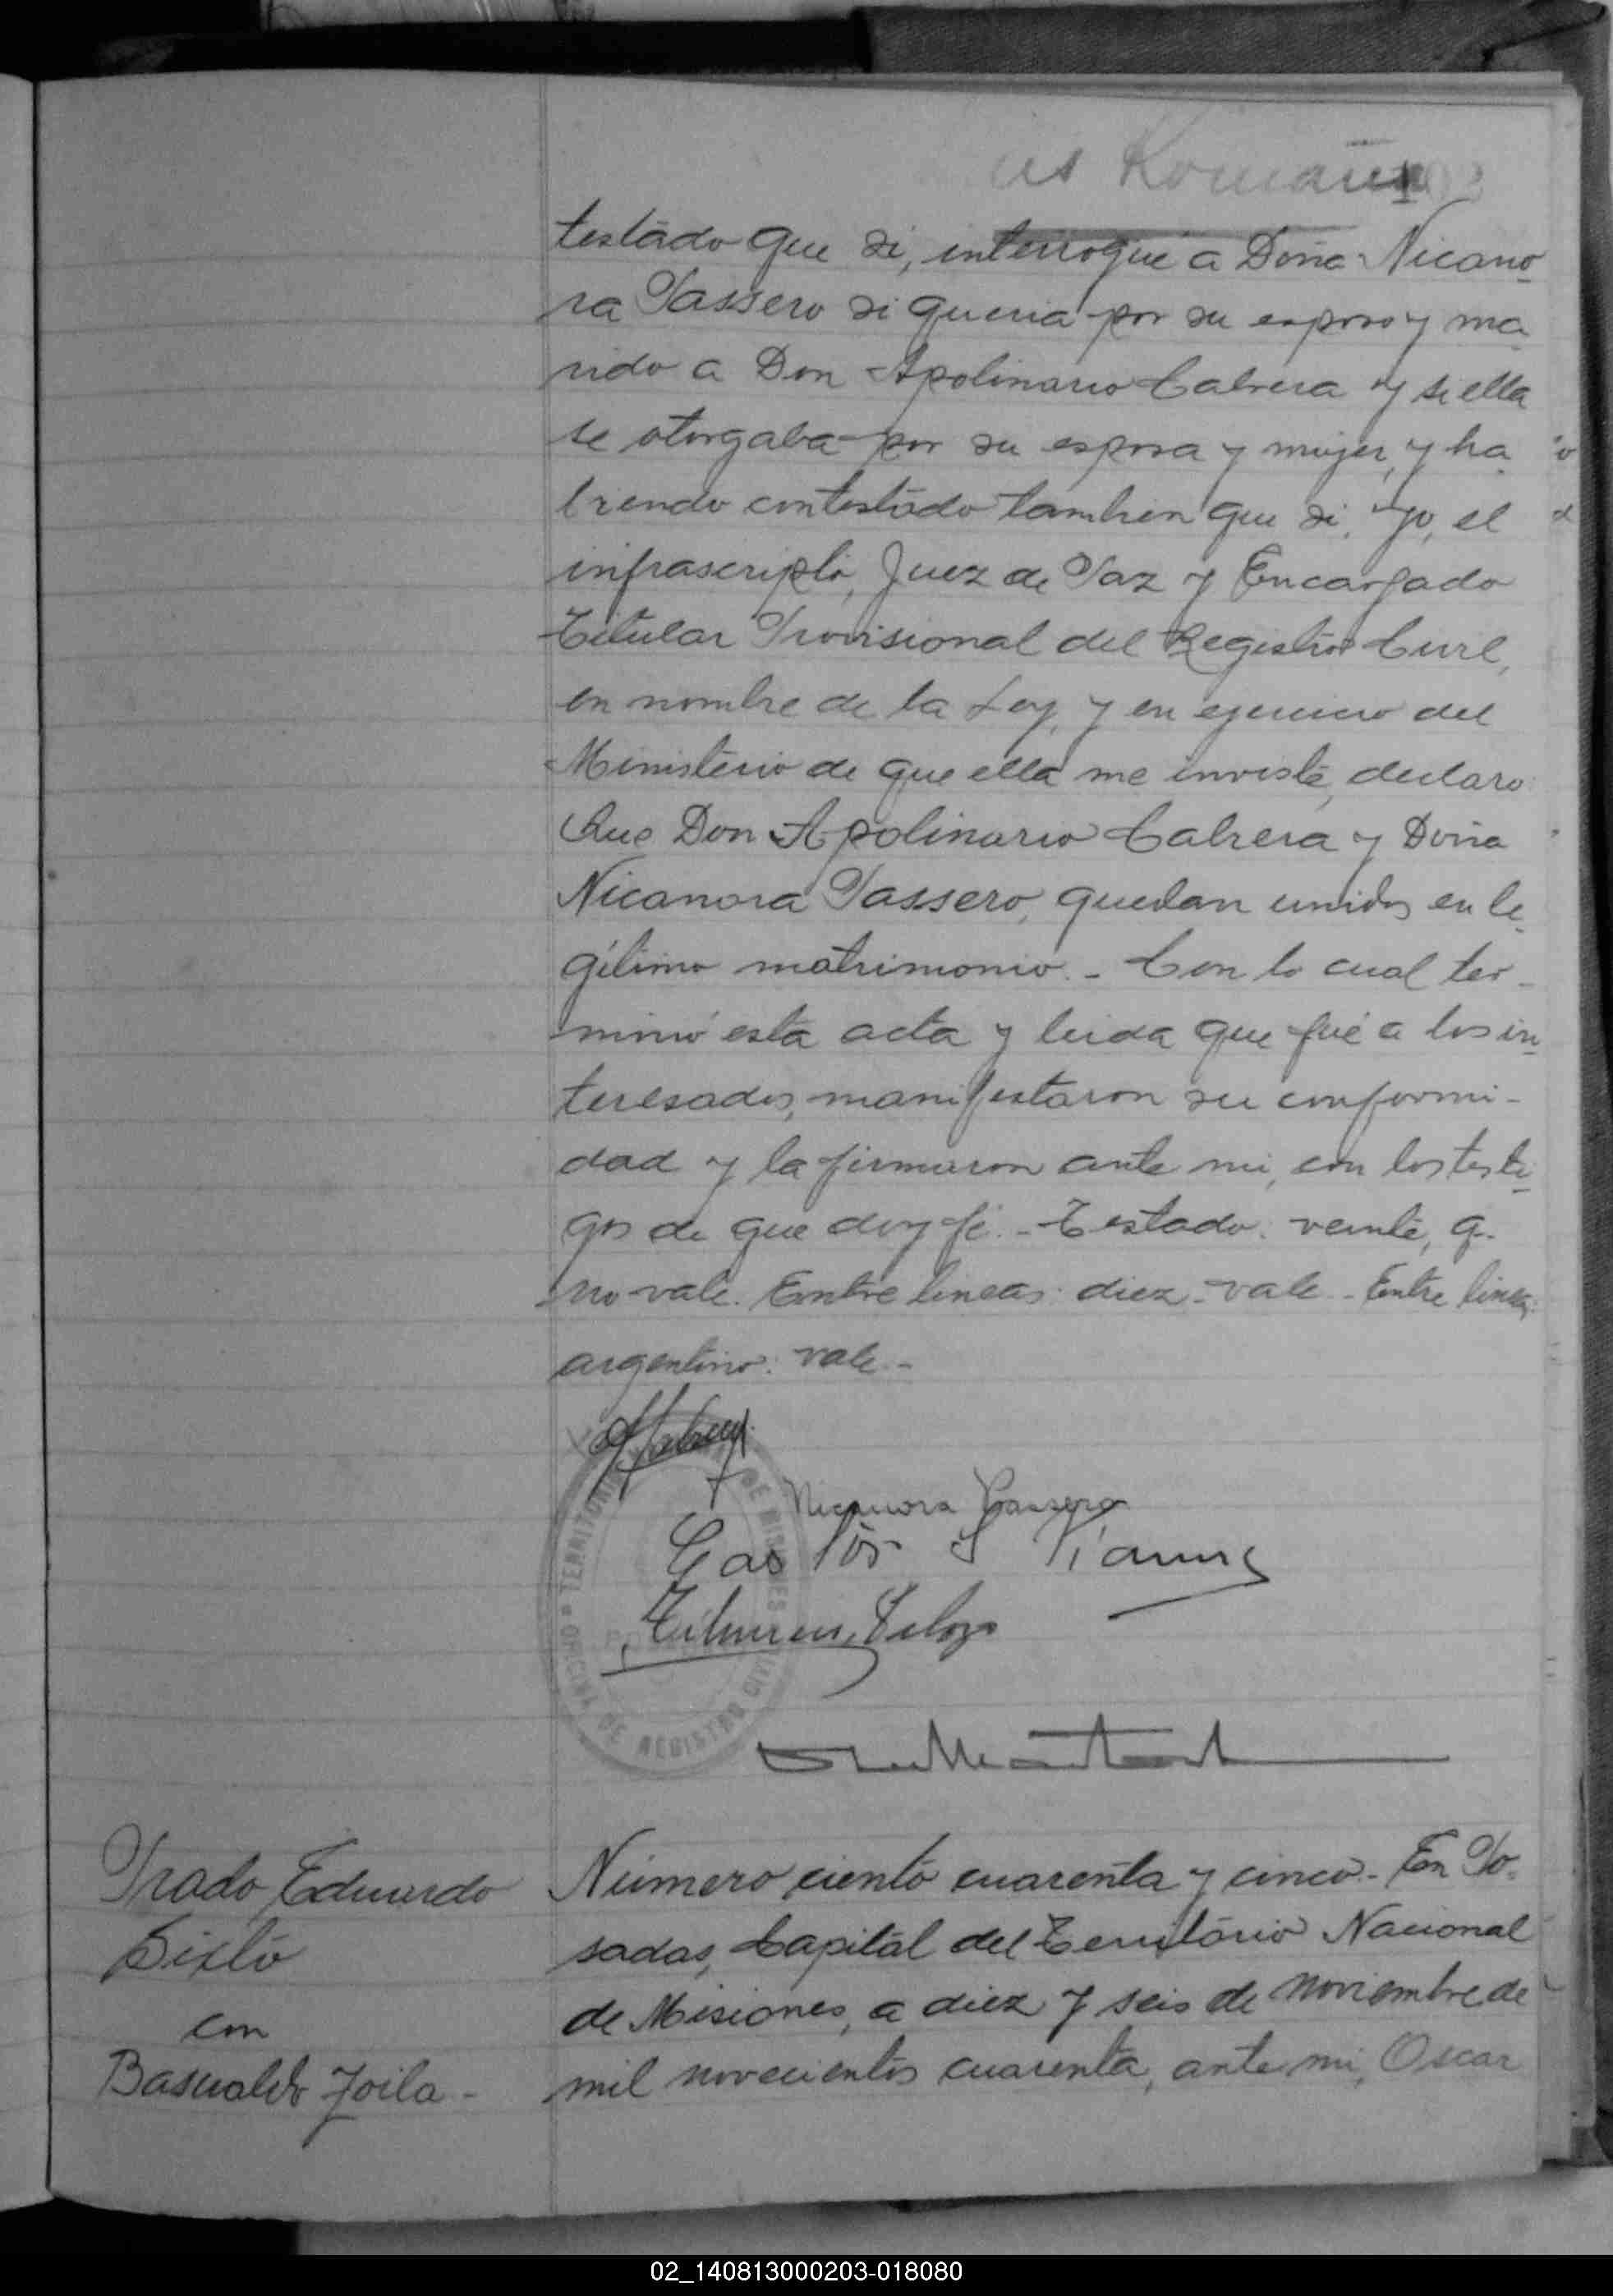 testado que si, interrogué a Doña Nicano
ra Passero si queria por su esposo y ma
rido a Don Apolinario Cabrera y si ella
se otorgaba por su esposa y mujer, y ha
biendo contestado tambien que si. Yo, el
infrascripto, Juez de Paz y Encargado
Titular Provisional del Registro Civil,
en nombre de la Ley, y en ejercicio del
Ministerio de que ella me inviste, declaro
Que Don Apolinario Cabrera y Doña
Nicanora Passero, quedan unidos en le
gitimo matrimonio.- Con lo cual ter-
minó esta acta y leida que fué a los in
teresados, manifestaron su conformi-
dad y la firmaron ante mi, con los testi
gos de que doy fé.- Testado: veinte, q.
no vale. Entre lineas: diez- vale.- Entre lineas:
argentino: vale.-
Nicanora Passero
OFICINA DE REGISTRO CIVIL TERRITORIO DE MISIONES
Prado Eduardo
Sixto
con
Basualdo Zoila-
Número ciento cuarenta y cinco.- En Po-
sadas, Capital del Territorio Nacional
de Misiones, a diez y seis de Noviembre de
mil novecientos cuarenta, ante mi, Oscar
02_140813000203-018080